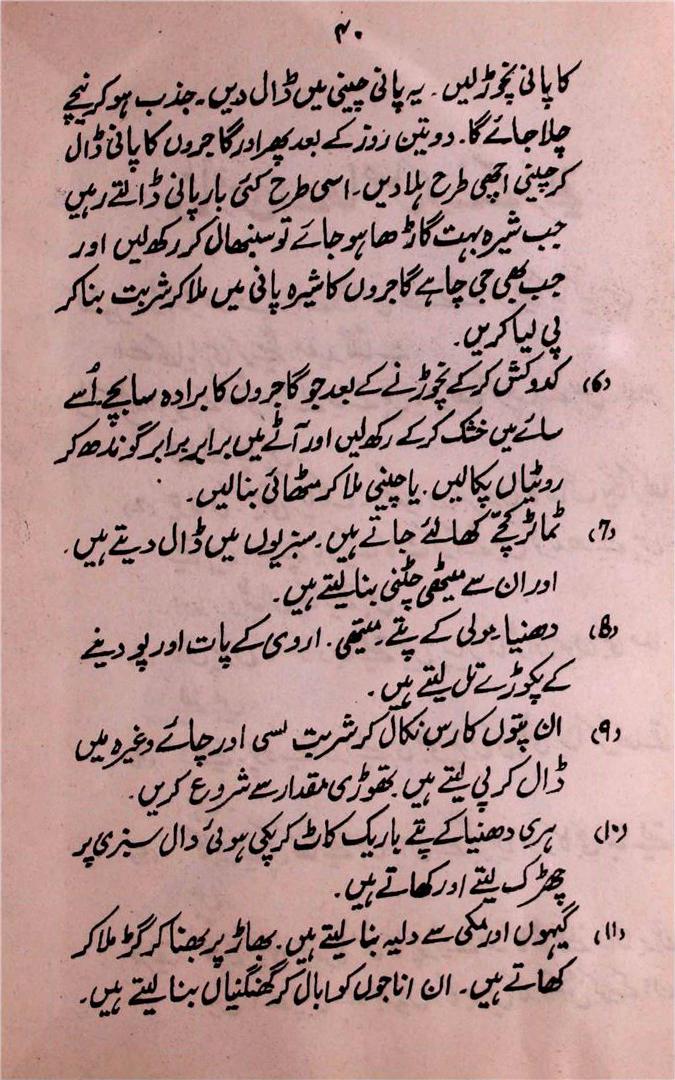 ۴۰
کا پانی نچوڑ لیں۔ یہ پانی چینی میں ڈال دیں۔ جذب ہو کر نیچے
چلا جائے گا۔ دو تین روز کے بعد پھر اور گاجروں کا پانی ڈال
کر چینی اچھی طرح ہلا دیں۔ اسی طرح کئی بار پانی ڈالتے رہیں
جب شیرہ بہت گاڑھا ہو جائے تو سنبھال کر رکھ لیں اور
جب بھی جی چاہے گاجروں کا شیرہ پانی میں ملا کر شربت بنا کر
پی لیا کریں۔
(6) کدوکش کر کے نچوڑنے کے بعد جو گاجروں کا برادہ سا بچے اُسے
سائے میں خشک کر کے رکھ لیں اور آٹے میں برابر برابر گوندھ کر
روٹیاں پکا لیں۔ یا چینی ملا کر مٹھائی بنالیں۔
(7) ٹماٹر کچے کھائے جاتے ہیں۔ سبزیوں میں ڈال دیتے ہیں۔
اور ان سے میٹھی چٹنی بنالیتے ہیں۔
(8) دھنیا۔ مولی کے پتے۔ میتھی۔ اروی کے پات اور پودینے
کے پکوڑے تل لیتے ہیں۔
(۹) ان پتوں کا رس نکال کر شربت لسی اور چائے وغیرہ میں
ڈال کر پی لیتے ہیں۔ تھوڑی مقدار سے شروع کریں۔
(۱۰) ہری دھنیا کے پتے باریک کاٹ کر پکی ہوئی دال سبزی پر
چھڑک لیتے اور کھاتے ہیں۔
(۱۱) گیہوں اور مکی سے دلیہ بنا لیتے ہیں۔ بھاڑ پر بھنا کر گڑ ملا کر
کھاتے ہیں۔ ان اناجوں کو ابال کر گھنگنیاں بنا لیتے ہیں۔